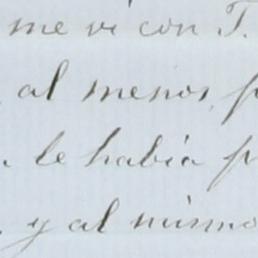 me vi con T.
al menos, p
. le habia p
. y al mismo